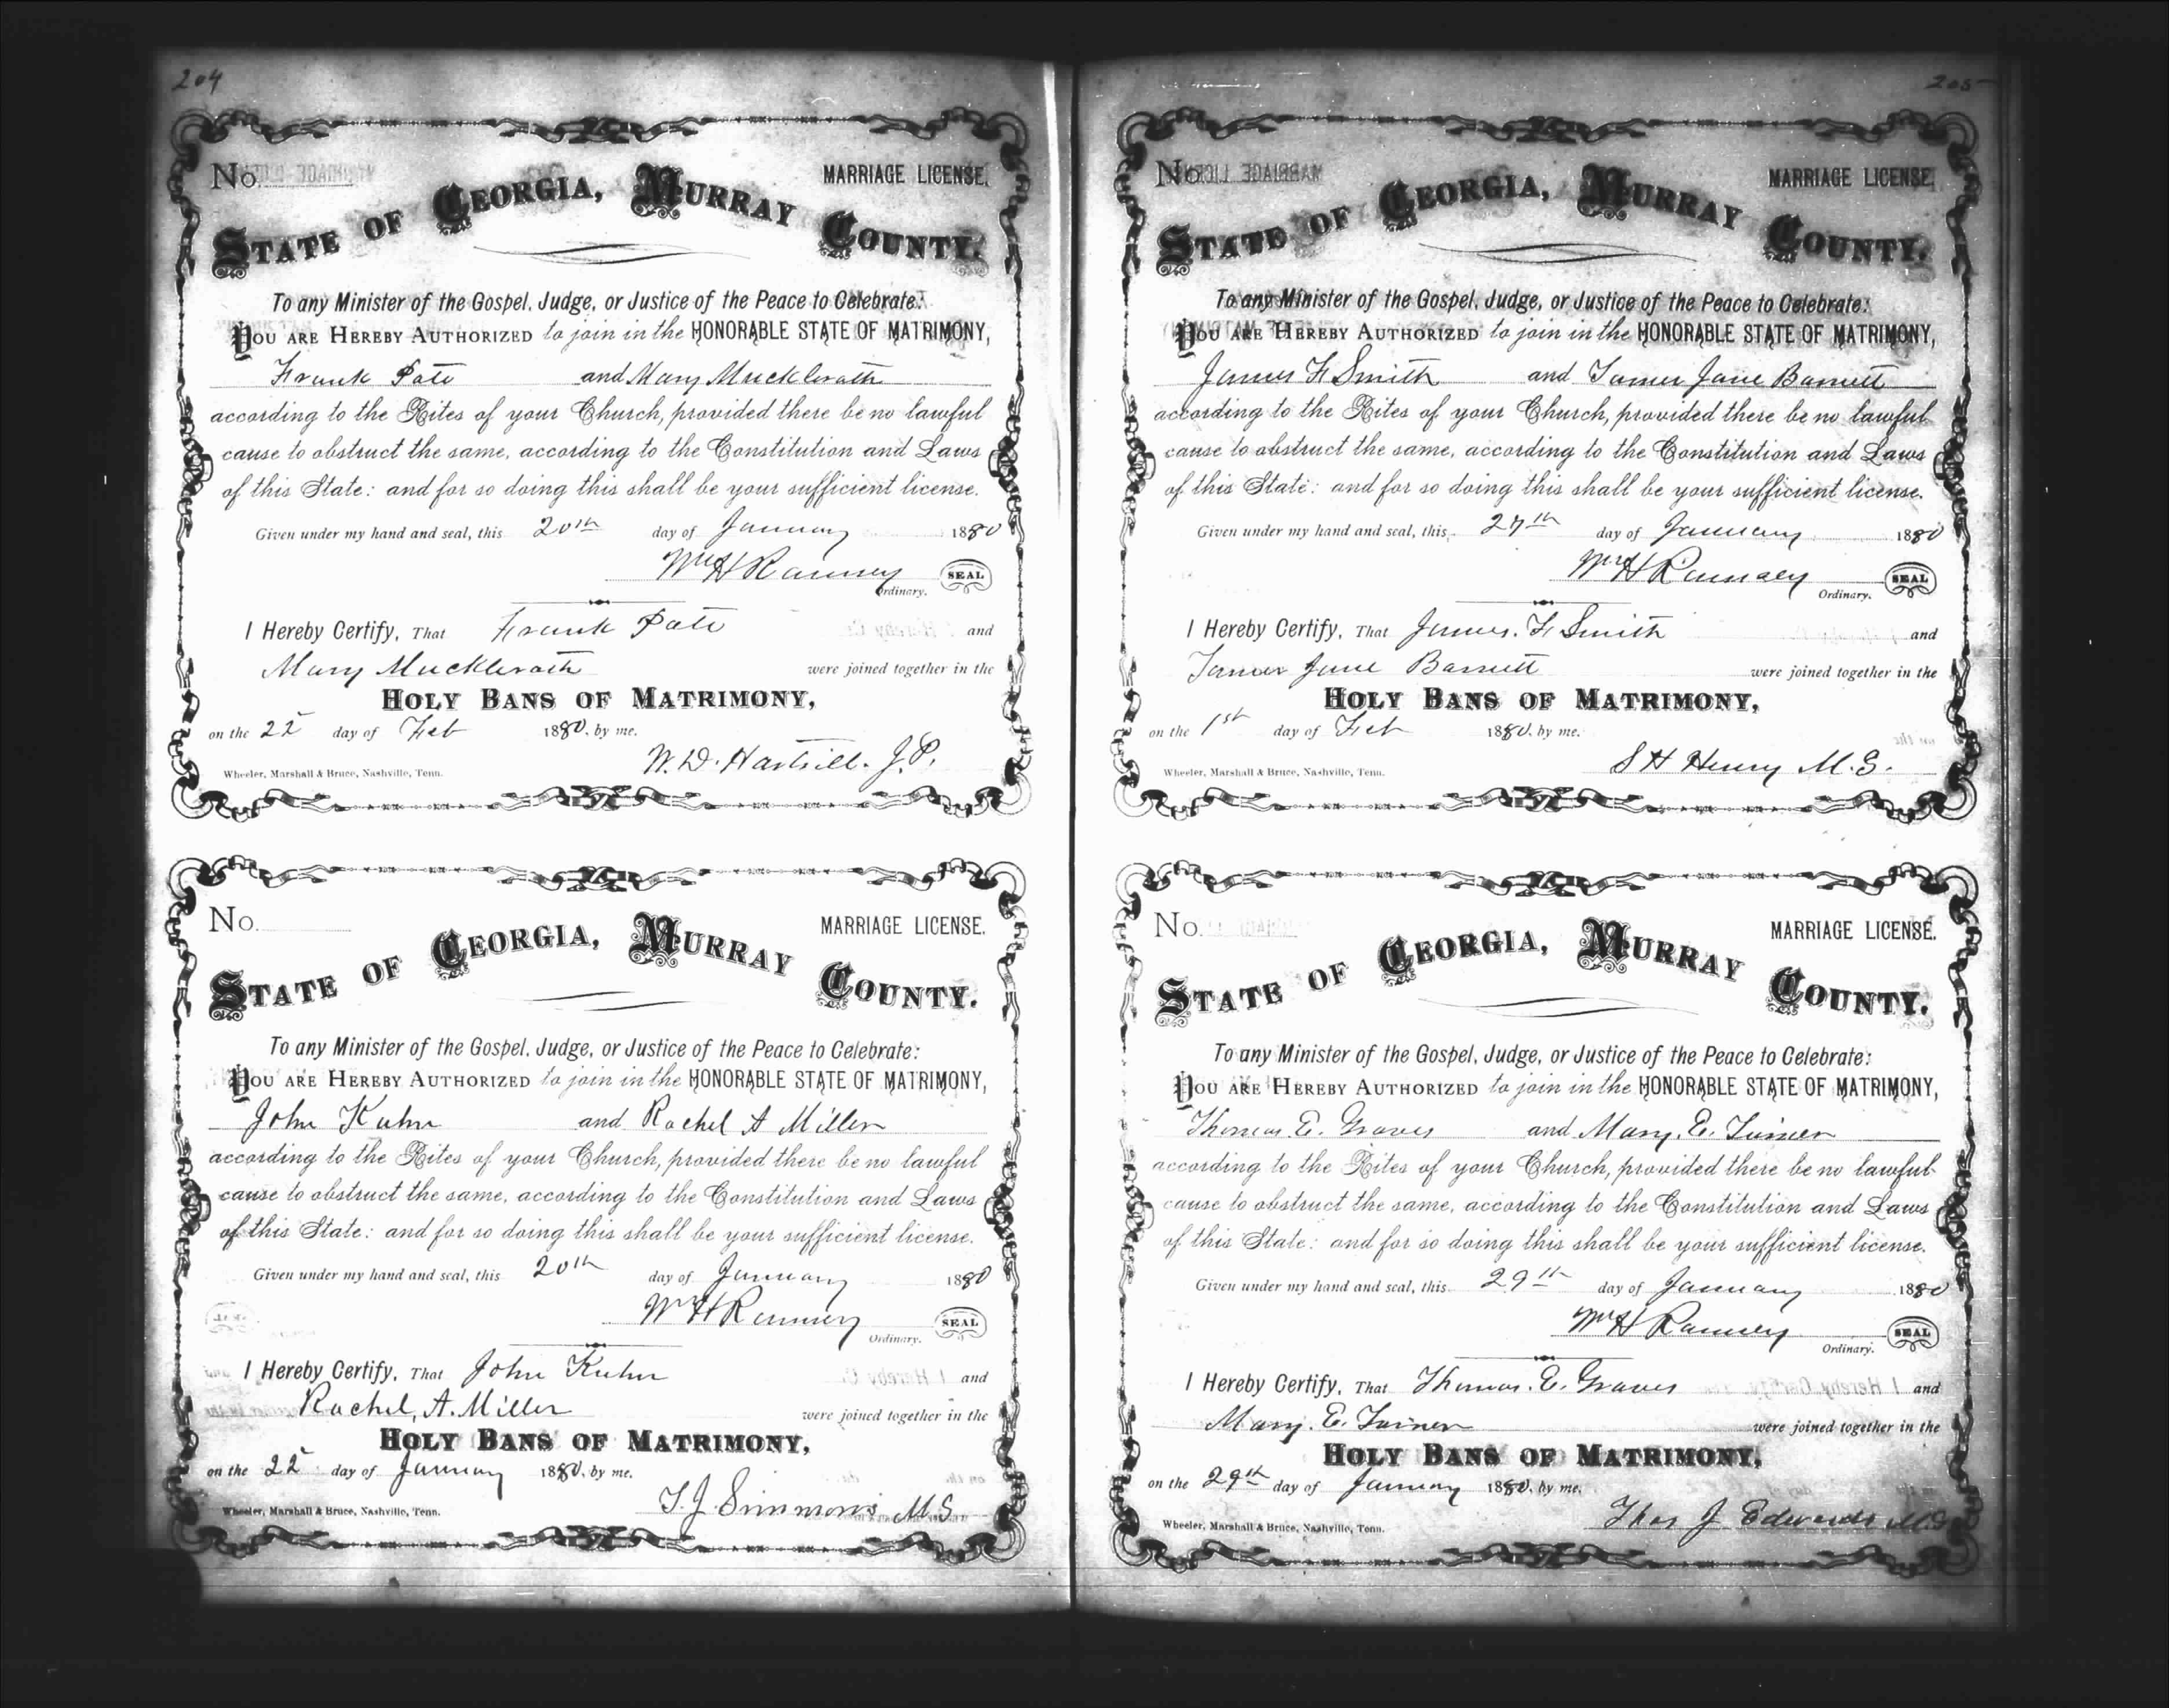 204
No.
MARRIAGE LICENSE.
STATE OF GEORGIA, MURRAY COUNTY.
To any Minister of the Gospel, Judge, or Justice of the Peace to Celebrate:
YOU ARE HEREBY AUTHORIZED to join in the HONORABLE STATE OF MATRIMONY,
Frank Pate and Mary Mucklerath
according to the Rites of your Church, provided there be no lawful
cause to obstruct the same, according to the Constitution and Laws
of this State: and for so doing this shall be your sufficient license.
Given under my hand and seal, this 20th day of January 1880
Wm H Ramsey SEAL
Ordinary.
I Hereby Certify, That Frank Pate and
Mary Mucklerath were joined together in the
HOLY BANS OF MATRIMONY,
on the 22 day of Feb 1880, by me.
W. D. Hartsill. J. P.
Wheeler, Marshall & Bruce, Nashville, Tenn.
No.
MARRIAGE LICENSE.
STATE OF GEORGIA, MURRAY COUNTY.
To any Minister of the Gospel, Judge, or Justice of the Peace to Celebrate:
YOU ARE HEREBY AUTHORIZED to join in the HONORABLE STATE OF MATRIMONY,
John Kuhn and Rachel A Miller
according to the Rites of your Church, provided there be no lawful
cause to obstruct the same, according to the Constitution and Laws
of this State: and for so doing this shall be your sufficient license.
Given under my hand and seal, this 20th day of January 1880
Wm H Ramsey SEAL
Ordinary.
I Hereby Certify, That John Kuhn and
Rachel, A. Miller were joined together in the
HOLY BANS OF MATRIMONY,
on the 22 day of January 1880, by me.
T. J. Simmons M.G.
Wheeler, Marshall & Bruce, Nashville, Tenn.
205
No.
MARRIAGE LICENSE.
STATE OF GEORGIA, MURRAY COUNTY.
To any Minister of the Gospel, Judge, or Justice of the Peace to Celebrate:
YOU ARE HEREBY AUTHORIZED to join in the HONORABLE STATE OF MATRIMONY,
James F Smith and Tamer Jane Barnett
according to the Rites of your Church, provided there be no lawful
cause to obstruct the same, according to the Constitution and Laws
of this State: and for so doing this shall be your sufficient license.
Given under my hand and seal, this 27th day of January 1880
Wm H Ramsey SEAL
Ordinary.
I Hereby Certify, That James. F. Smith and
Tamer Jane Barnett were joined together in the
HOLY BANS OF MATRIMONY,
on the 1st day of Feb 1880, by me.
S H Henry M.G.
Wheeler, Marshall & Bruce, Nashville, Tenn.
No.
MARRIAGE LICENSE.
STATE OF GEORGIA, MURRAY COUNTY.
To any Minister of the Gospel, Judge, or Justice of the Peace to Celebrate:
YOU ARE HEREBY AUTHORIZED to join in the HONORABLE STATE OF MATRIMONY,
Thomas. E. Graves and Mary. E. Turner
according to the Rites of your Church, provided there be no lawful
cause to obstruct the same, according to the Constitution and Laws
of this State: and for so doing this shall be your sufficient license.
Given under my hand and seal, this 29th day of January 1880
Wm H Ramsey SEAL
Ordinary.
I Hereby Certify, That Thomas. E. Graves and
Mary. E. Turner were joined together in the
HOLY BANS OF MATRIMONY,
on the 29th day of January 1880, by me.
Thos J Edwards M.G
Wheeler, Marshall & Bruce, Nashville, Tenn.